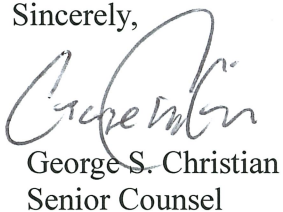 Sincerely,
George S. Christian
Senior Counsel